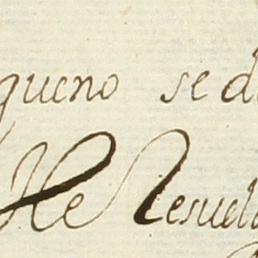 queno se d
He Resuelt